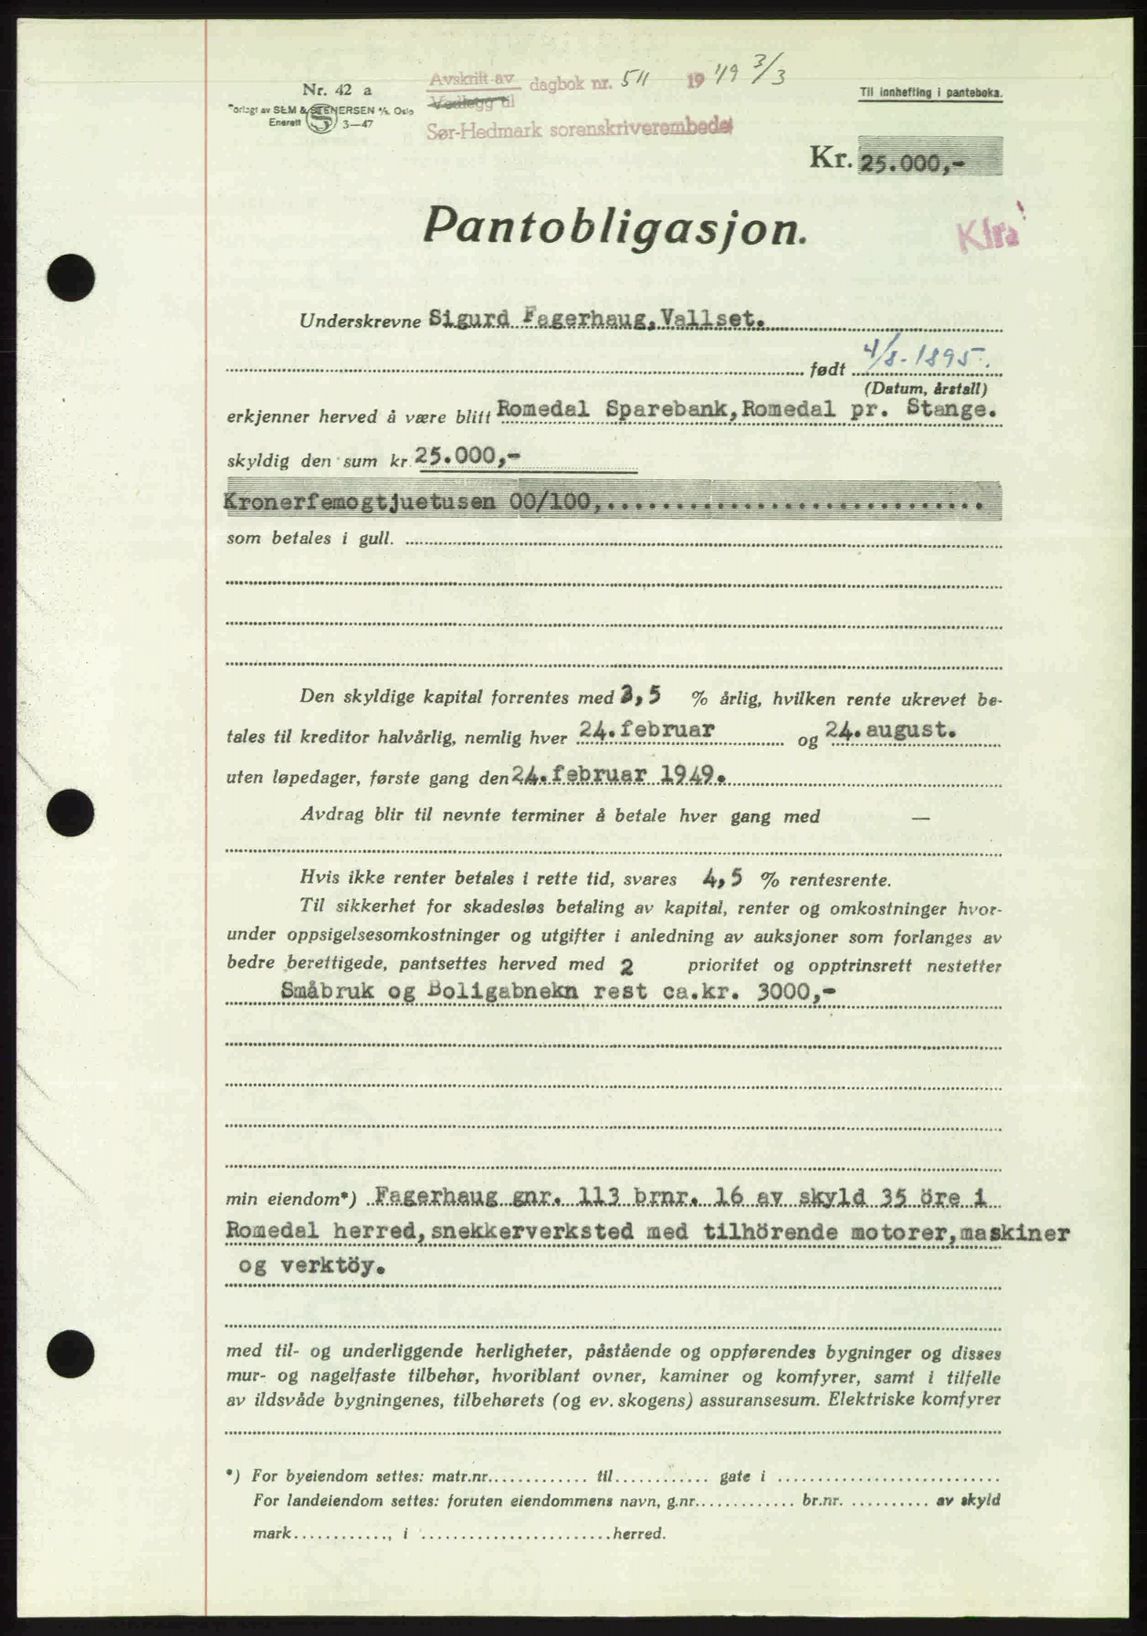 Nr. 42 a
Forlagt av SEM & STENERSEN A/S, Oslo
Enerett S 3—47
Avskrift av
Vedlegg til
dagbok nr. 511 1949 3/3
Sør-Hedmark sorenskriverembede
Til innhefting i panteboka.
Kr. 25.000,-
Pantobligasjon.
Underskrevne Sigurd Fagerhaug, Vallset.
født 4/8-1895.
(Datum, årstall)
erkjenner herved å være blitt Romedal Sparebank, Romedal pr. Stange.
skyldig den sum kr. 25.000,-
Kronerfemogtjuetusen 00/100,............................
som betales i gull.
Den skyldige kapital forrentes med 3,5 % årlig, hvilken rente ukrevet be-
tales til kreditor halvårlig, nemlig hver 24. februar og 24. august.
uten løpedager, første gang den 24. februar 1949.
Avdrag blir til nevnte terminer å betale hver gang med —
Hvis ikke renter betales i rette tid, svares 4,5 % rentesrente.
Til sikkerhet for skadesløs betaling av kapital, renter og omkostninger hvor-
under oppsigelsesomkostninger og utgifter i anledning av auksjoner som forlanges av
bedre berettigede, pantsettes herved med 2 prioritet og opptrinsrett nestetter
Småbruk og Boligabnekn rest ca.kr. 3000,-
min eiendom*) Fagerhaug gnr. 113 brnr. 16 av skyld 35 öre i
Romedal herred, snekkerverksted med tilhörende motorer, maskiner
og verktöy.
med til- og underliggende herligheter, påstående og oppførendes bygninger og disses
mur- og nagelfaste tilbehør, hvoriblant ovner, kaminer og komfyrer, samt i tilfelle
av ildsvåde bygningenes, tilbehørets (og ev. skogens) assuransesum. Elektriske komfyrer
*) For byeiendom settes: matr.nr............. til............ gate i ............................
For landeiendom settes: foruten eiendommens navn, g.nr............. br.nr. .......... av skyld
mark............, i ........................herred.